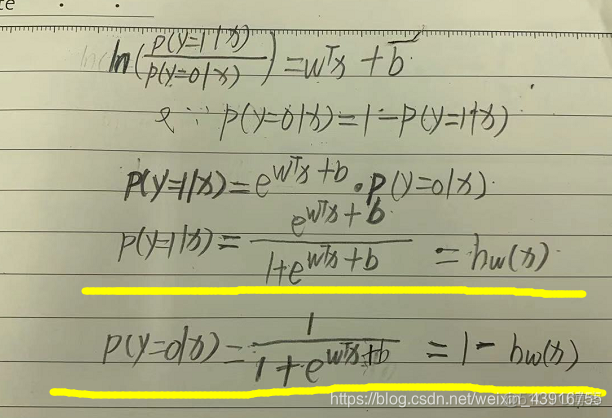 te
ln(p(y=1|x)/p(y=0|x)) = wᵀx + b
∵ p(y=0|x) = 1 - p(y=1|x)
p(y=1|x) = e^(wᵀx + b) · p(y=0|x)
p(y=1|x) = e^(wᵀx + b)/(1+e^(wᵀx + b)) = hw(x)
p(y=0|x) = 1/(1 + e^(wᵀx + b)) = 1 - hw(x)
https://blog.csdn.net/weixin_43916755